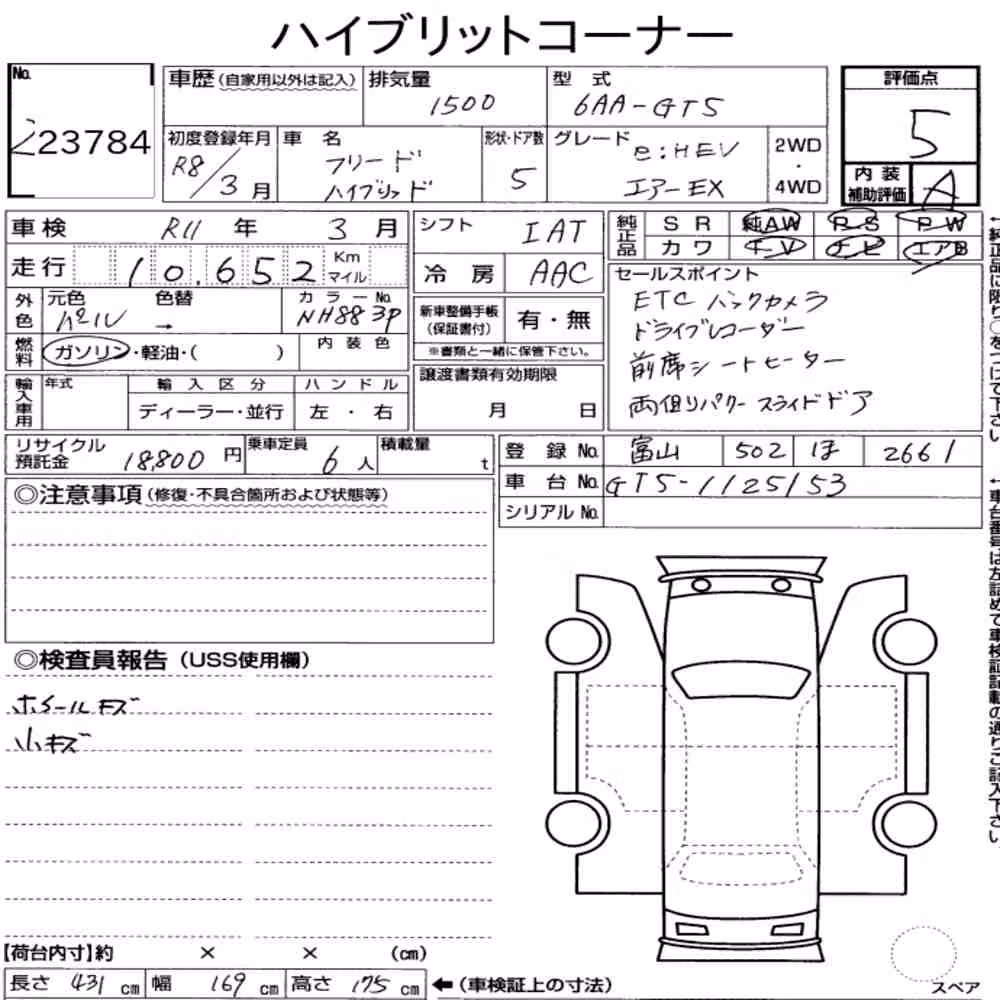 ハイブリットコーナー
No. 23784
車歴 (自家用以外は記入) 排気量 1500 型式 6AA-GT5
初度登録年月 R8/3月 車名 フリード ハイブリッド 形状・ドア数 5 グレード e:HEV エアー EX 2WD ・ 4WD
評価点 5
内装補助評価 A
車検 R11 年 3 月
走行 10,652 Km マイル
外色 元色 パール 色替 → カラーNo. NH883P
燃料 ガソリン・軽油・( ) 内装色
輸入車用 年式 輸入区分 ディーラー・並行 ハンドル 左・右
シフト IAT
冷房 AAC
新車整備手帳 (保証書付) 有・無
※書類と一緒に保管下さい。
譲渡書類有効期限
月 日
純正品 SR 純AW P.S P.W
カワ T-V ナビ エアB
セールスポイント
ETC バックカメラ
ドライブレコーダー
前席シートヒーター
両側パワースライドドア
←純正品に限り○をつけて下さい
リサイクル預託金 18,800 円 乗車定員 6 人 積載量 t
登録No. 富山 502 ほ 2661
車台No. GT5-1125153
シリアルNo.
←車台番号は左詰めて車検証記載の通りご記入下さい。
◎注意事項(修復・不具合箇所および状態等)
◎検査員報告(USS使用欄)
ホイールキズ
小キズ
【荷台内寸】約 × × (cm)
長さ 431 cm 幅 169 cm 高さ 175 cm ←(車検証上の寸法)
スペア